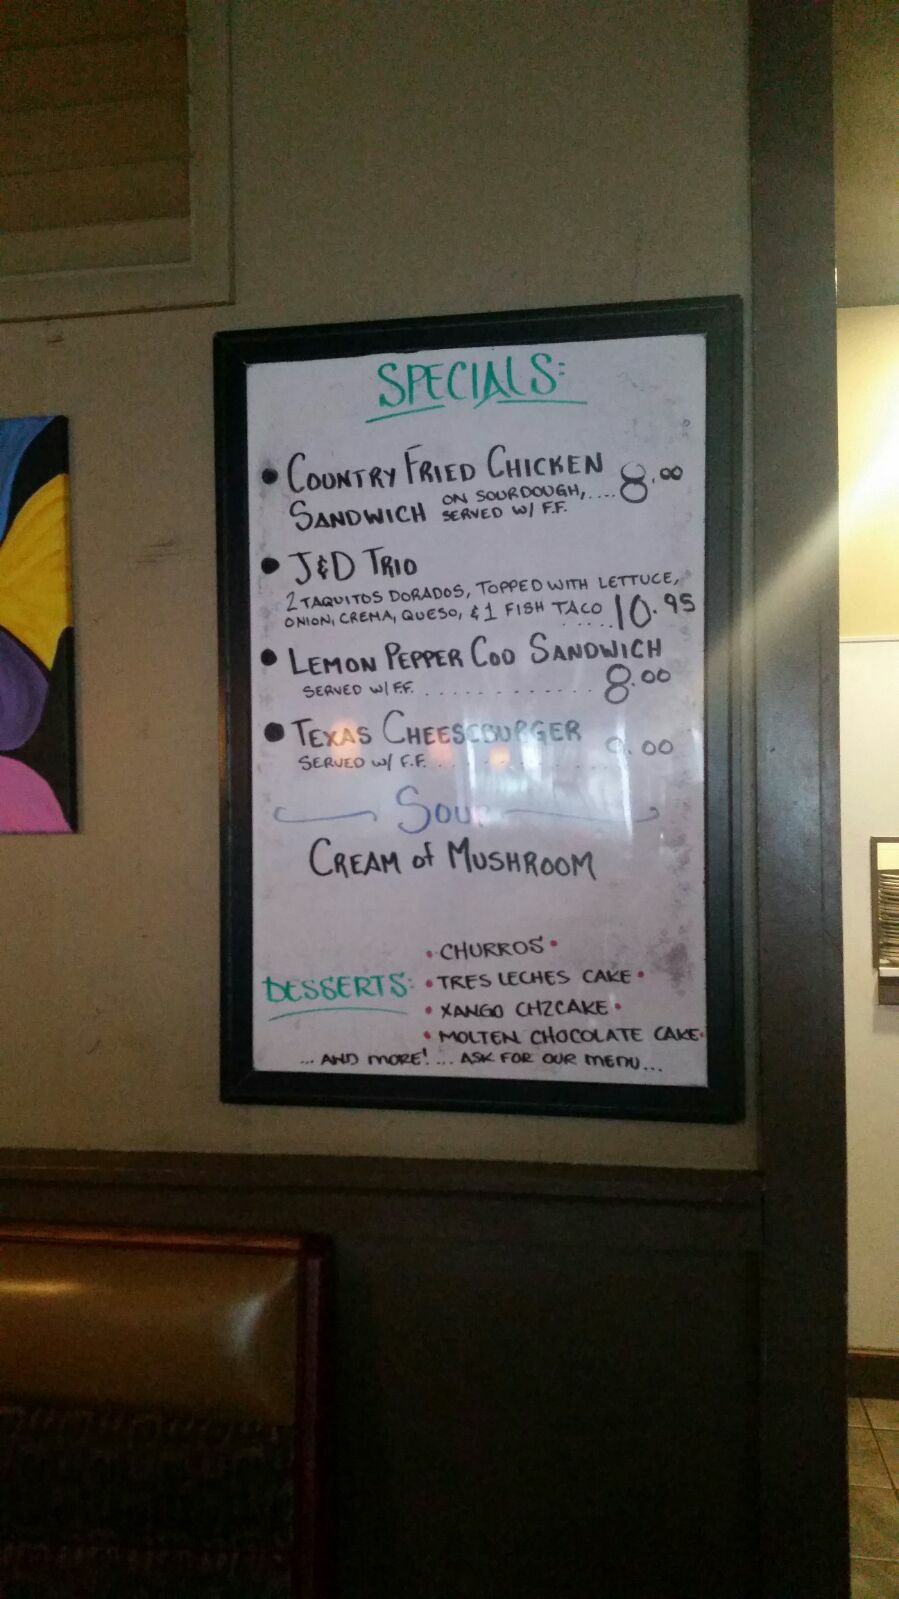 SPECIALS:
• COUNTRY FRIED CHICKEN
SANDWICH ON SOURDOUGH, .... 8.00
SERVED W/ F.F.
• J&D TRIO
2 TAQUITOS DORADOS, TOPPED WITH LETTUCE,
ONION, CREMA, QUESO, & 1 FISH TACO ..... 10.95
• LEMON PEPPER COD SANDWICH
SERVED W/ F.F. . . . . . . . . . . . . 8.00
• TEXAS CHEESEBURGER
SERVED W/ F.F. . . . . . . . . . . .
SOUP
CREAM of MUSHROOM
DESSERTS:
• CHURROS •
• TRES LECHES CAKE •
• XANGO CHZCAKE •
• MOLTEN CHOCOLATE CAKE •
... AND MORE! ... ASK FOR OUR MENU...